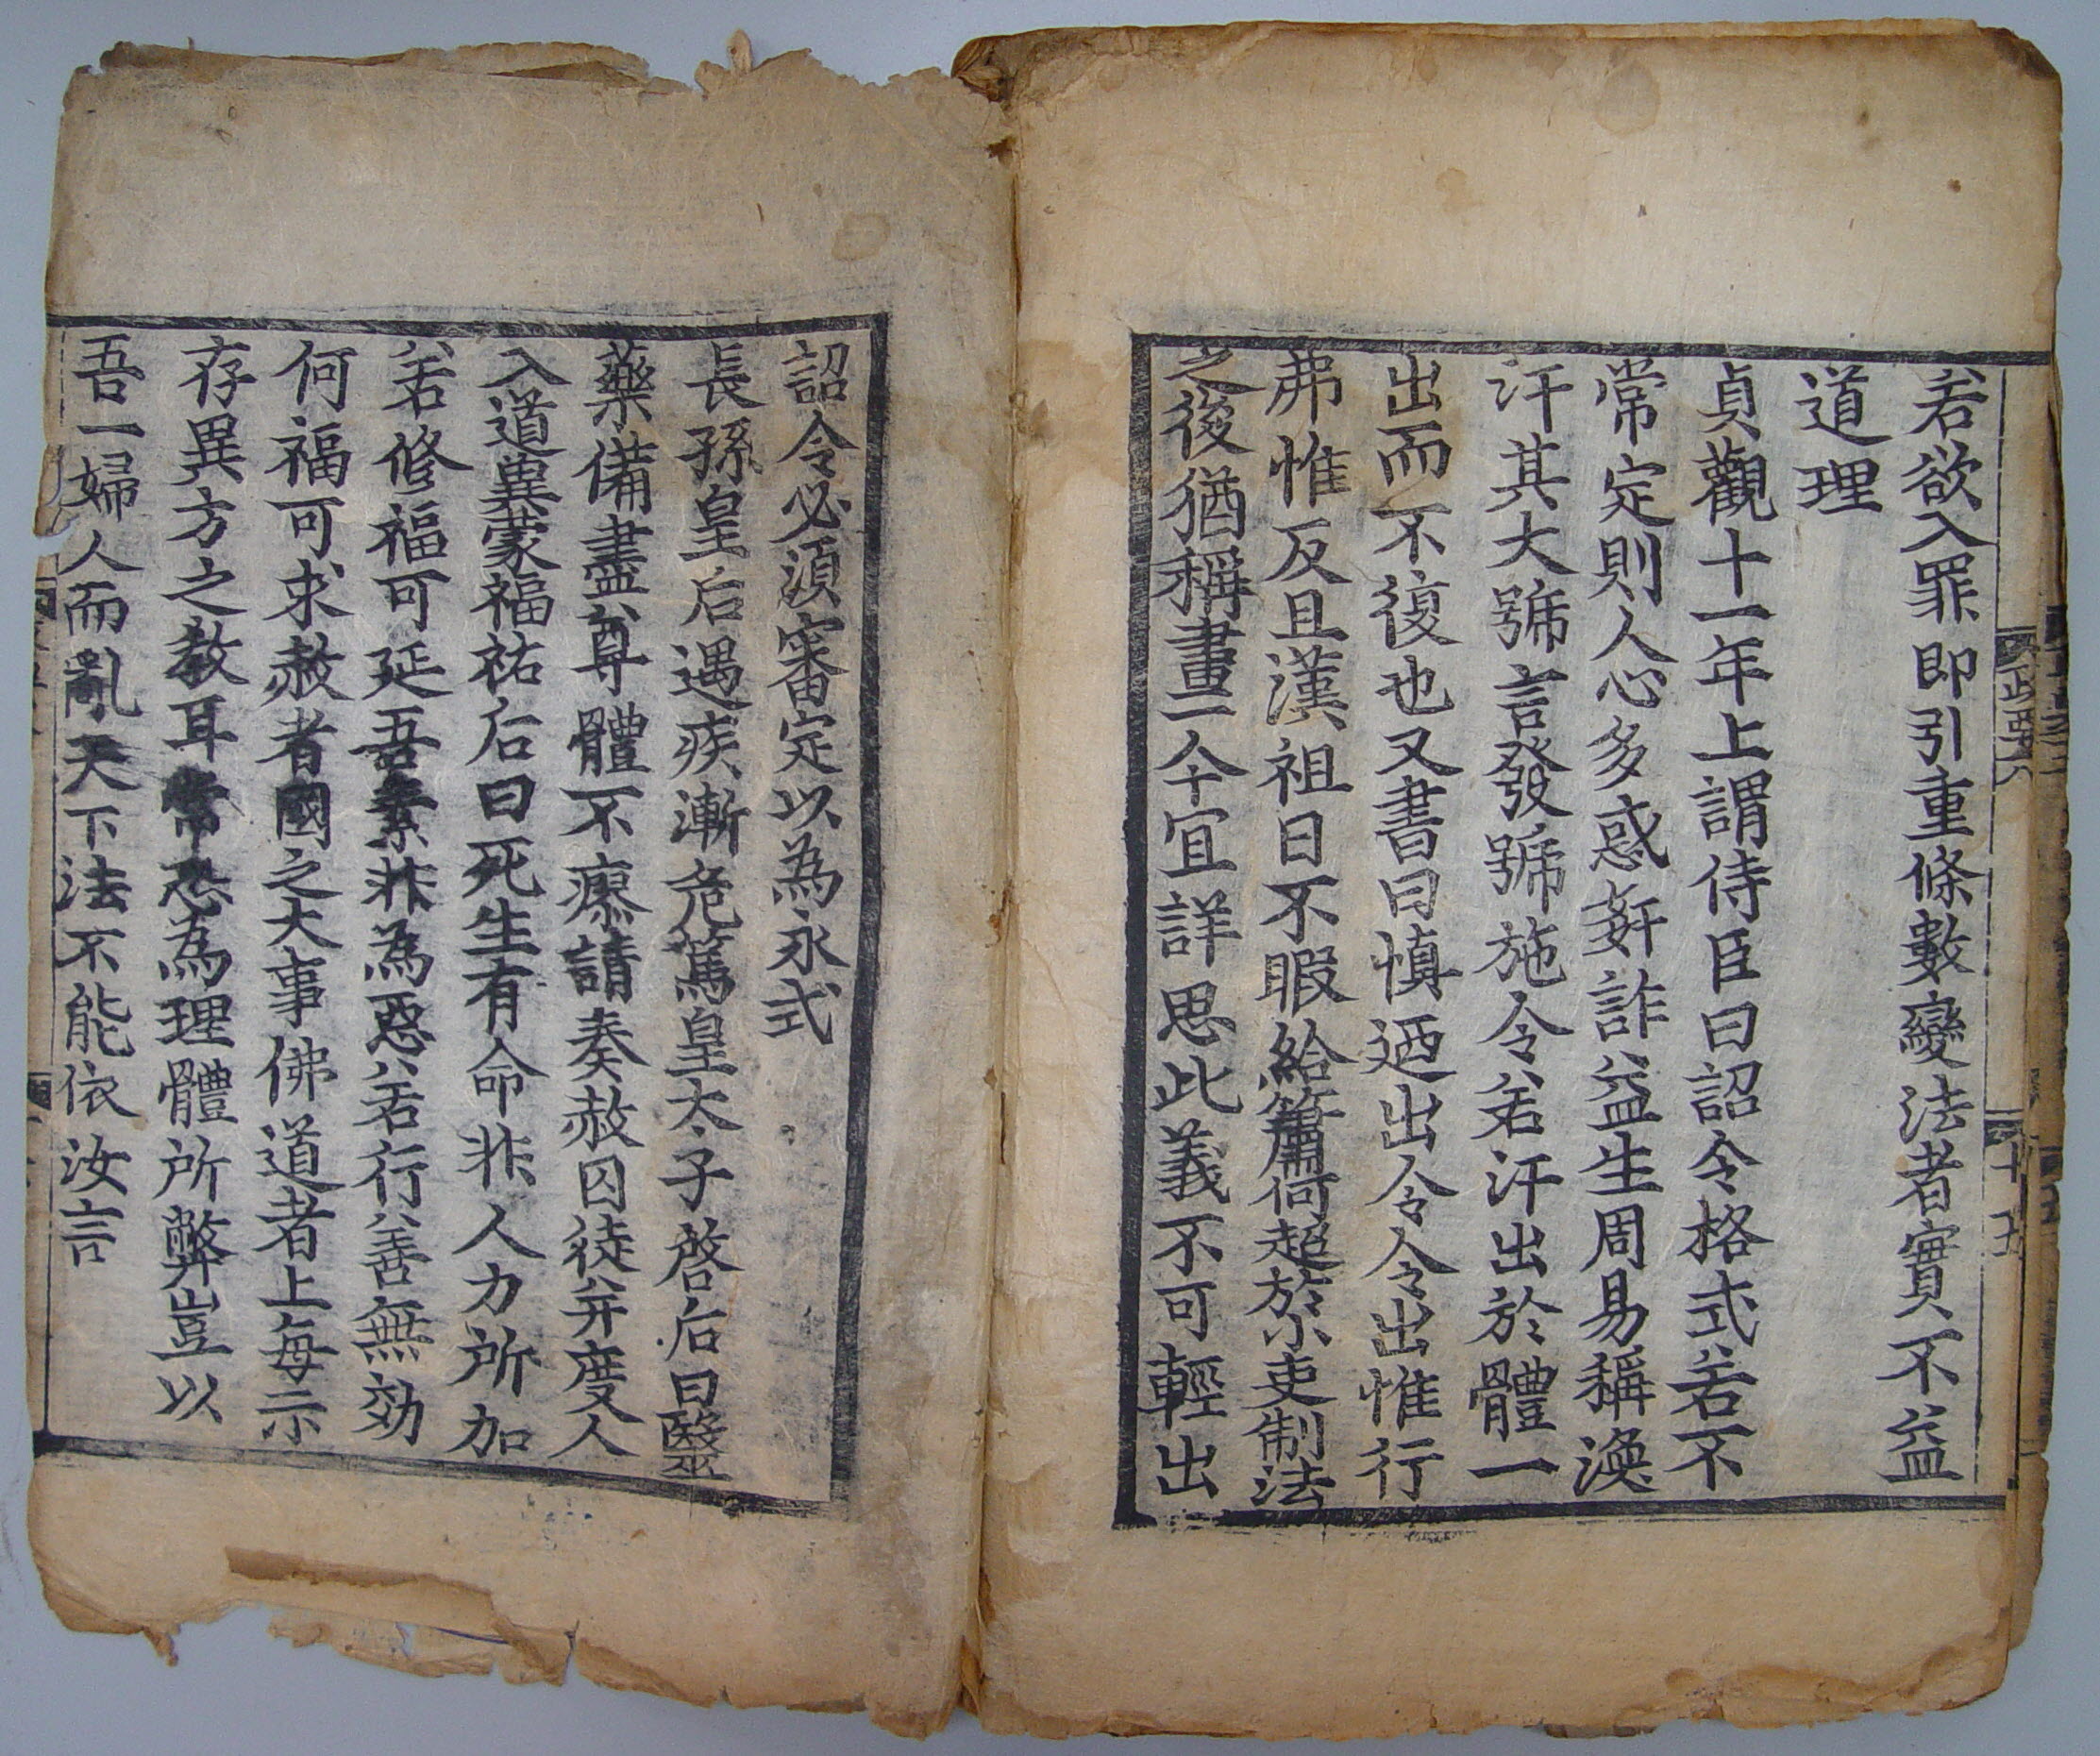 若欲入罪即引重條數變法者實不益
道理
貞觀十一年上謂侍臣曰詔令格式若不
常定則人心多惑姧詐益生周易稱渙
汗其大號言發號施令若汗出於體一
出而不復也又書曰慎迺出令令出惟行
弗惟反且漢祖日不暇給簫何起於小吏制法
之後猶稱畫一今宜詳思此義不可輕出
詔令必須審定以為永式
長孫皇后遇疾漸危篤皇太子啓后曰醫
藥備盡尊體不瘳請奏赦囚徒并度人
入道冀蒙福祐后曰死生有命非人力所加
若修福可延吾素非為惡若行善無効
何福可求赦者國之大事佛道者上每示
存異方之教耳常恐為理體所弊豈以
吾一婦人而亂天下法不能依汝言